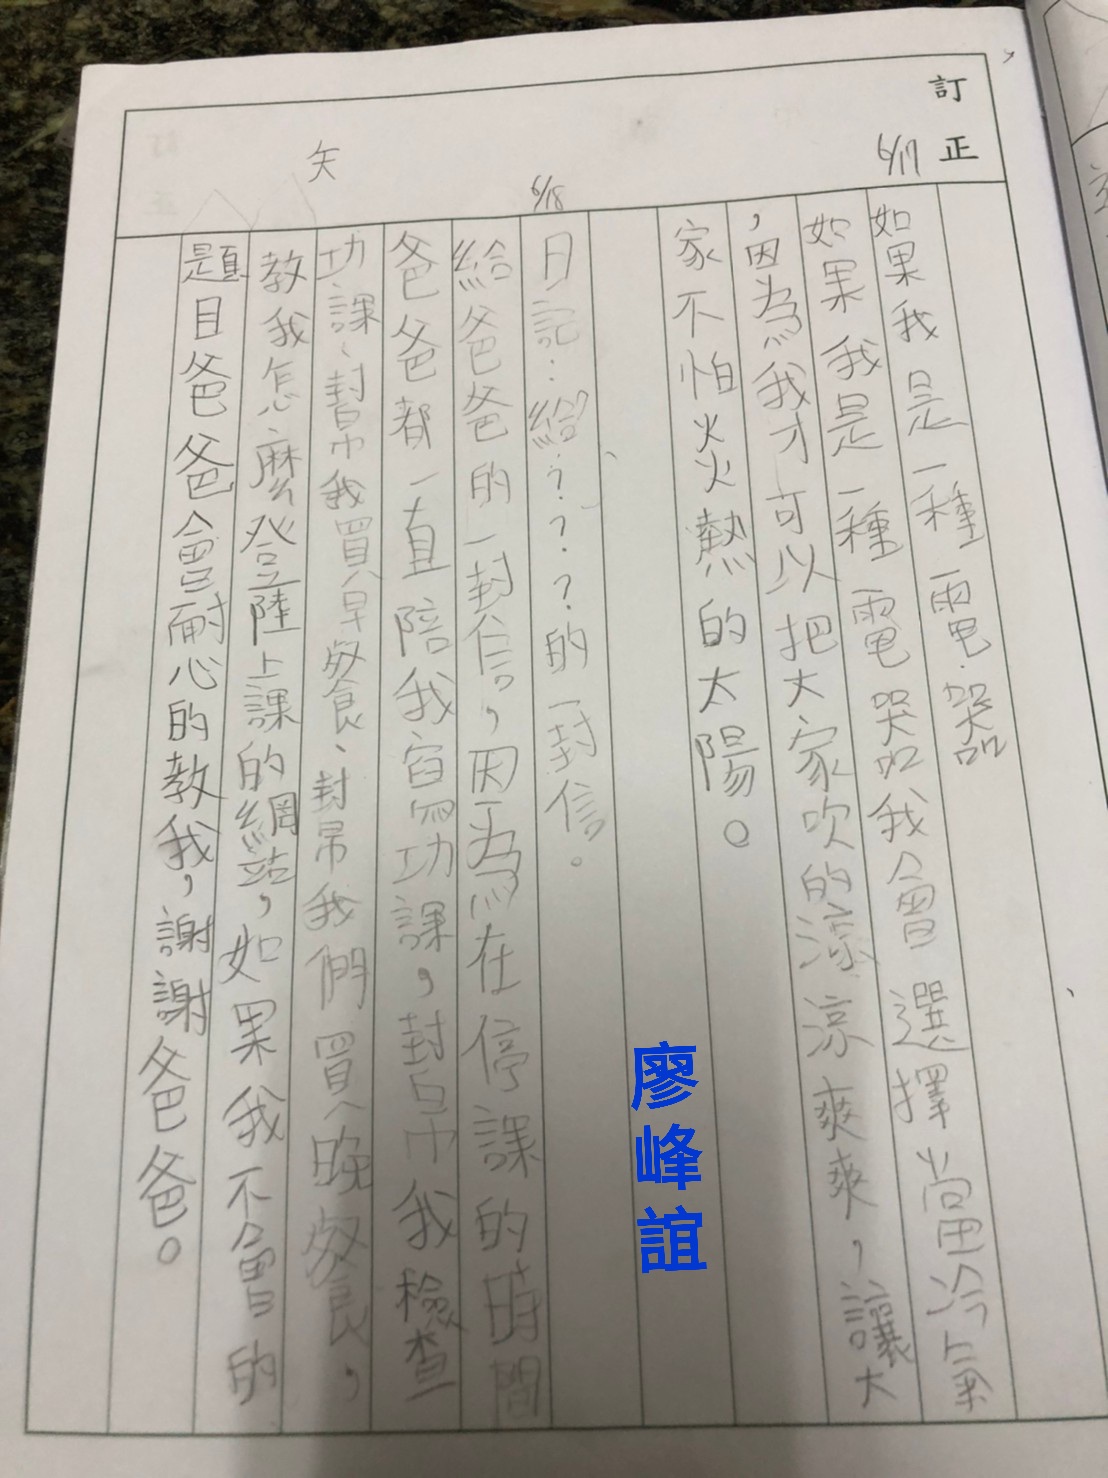 訂正
6/17
如果我是一種電器
如果我是一種電器我會選擇當冷氣
，因為我才可以把大家吹的涼涼爽爽，讓大
家不怕火火熱的太陽。
6/18
日記：給？？？的一封信。
給爸爸的一封信，因為在停課的時間
爸爸都一直陪我寫功課，幫我檢查
功課、幫我買早餐、幫我們買晚餐，
矢
教我怎麼登陸上課的網站，如果我不會的
題目爸爸會耐心的教我，謝謝爸爸。
廖峰誼